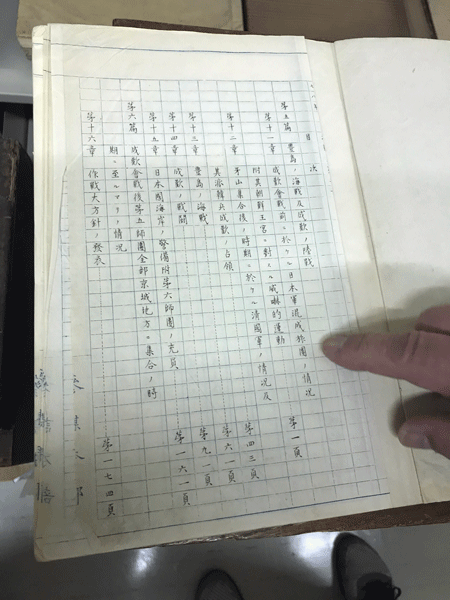 目次
第五篇 豊島ノ海戦及成歓ノ陸戦
第十一章 成歓会戦前ニ於ケル日本軍混成旅団ノ情況
附其朝鮮王宮ニ対スル威嚇的運動 第一頁
第十二章 牙山集合後ノ時期ニ於ケル清国軍ノ情況及
其派韓兵成歓ノ占領 第四三頁
第十三章 豊島ノ海戦 第六一頁
第十四章 成歓ノ戦闘 第九一頁
第十五章 日本国海岸ノ警備附第六師団ノ充員 第一六一頁
第六篇 成歓会戦後第五師団全部京城地方ニ集合ノ時
期ニ至ルマテノ情況
第十六章 作戦大方針ノ発表 第一七四頁